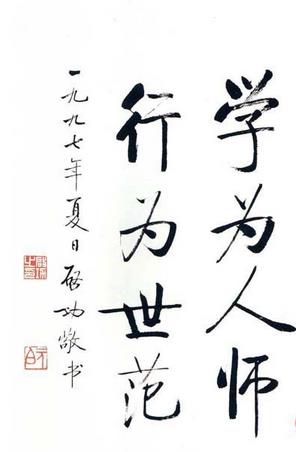 学为人师
行为世范
一九九七年夏日启功敬书